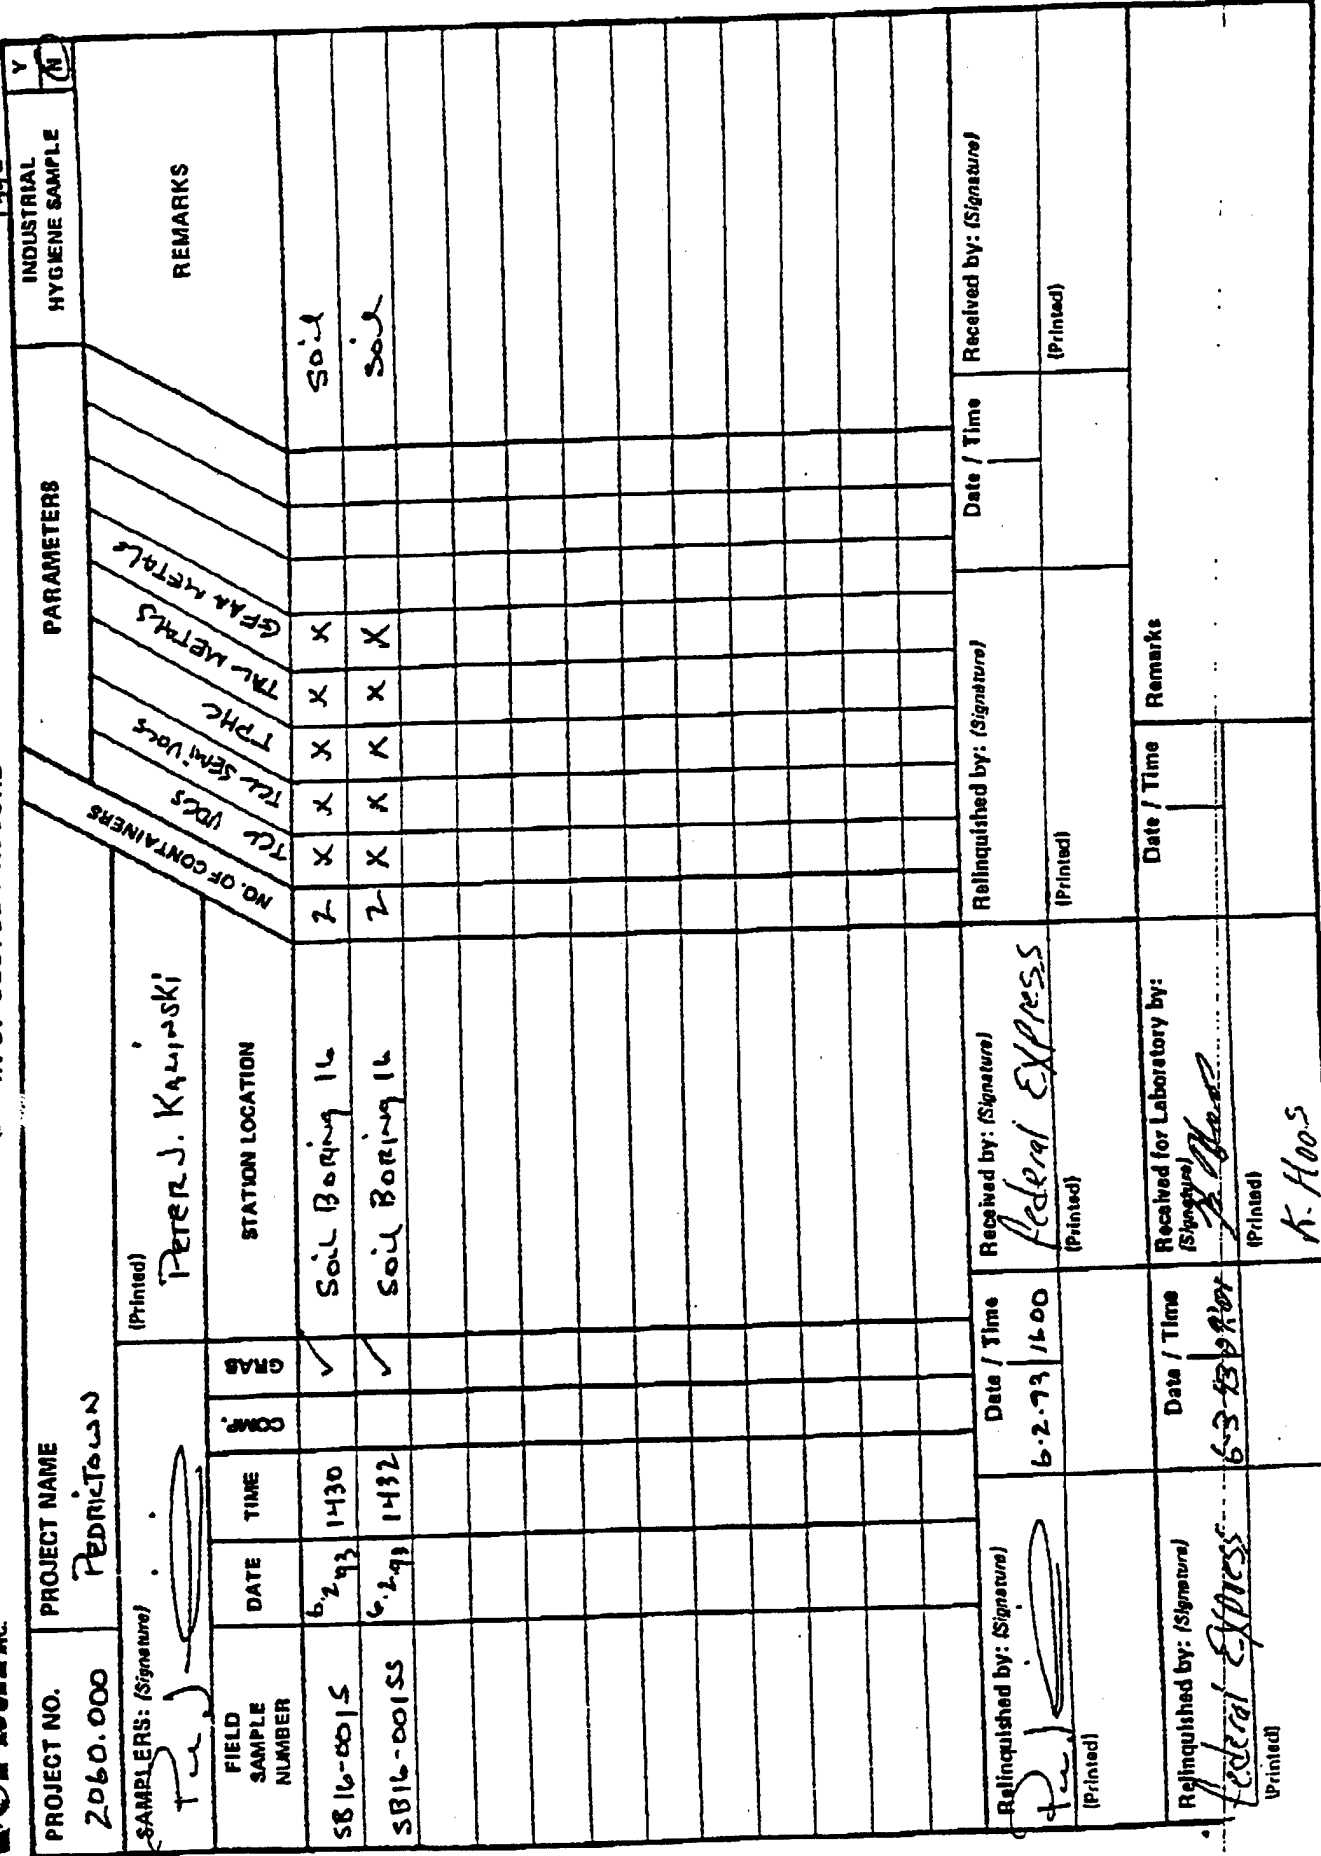 PROJECT NO.
2060.000
PROJECT NAME
PEDRICTOWN
PARAMETERS
INDUSTRIAL
HYGIENE SAMPLE
Y
N
SAMPLERS: (Signature)
(Printed)
PETER J. KALINSKI
FIELD
SAMPLE
NUMBER
DATE
TIME
COMP.
GRAB
STATION LOCATION
NO. OF CONTAINERS
TCL VOCS
TCL SEMI VOCS
TPHC
TAL METALS
GFAA METALS
REMARKS
SB16-001S 6.2.93 1430 ✓ Soil Boring 16 2 X X X X X Soil
SB16-001SS 6.2.93 1432 ✓ Soil Boring 16 2 X X X X X Soil
Relinquished by: (Signature)
(Printed)
Date / Time
6.2.93 1600
Received by: (Signature)
Federal Express
(Printed)
Relinquished by: (Signature)
(Printed)
Date / Time
Received by: (Signature)
(Printed)
Relinquished by: (Signature)
Federal Express
(Printed)
Date / Time
6-3-93
Received for Laboratory by:
(Signature)
(Printed)
K. Hoos
Date / Time
Remarks